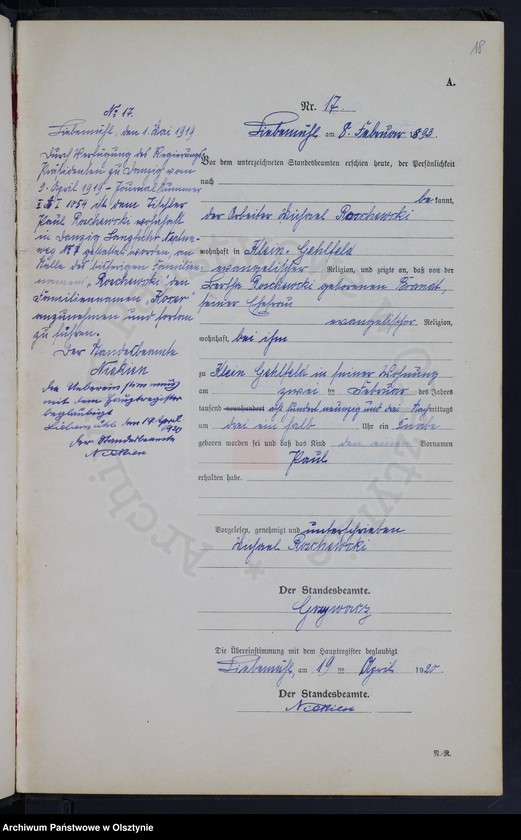 18
A.
Nr. 17.
Liebemühl am 8. Februar 1893.
Vor dem unterzeichneten Standesbeamten erschien heute, der Persönlichkeit
nach
be kannt,
der Arbeiter Michael Roschewski
wohnhaft in Klein-Gehlfeld
evangelischer Religion, und zeigte an, daß von der
Bertha Roschewski geborenen
seiner Ehefrau
evangelischer Religion,
wohnhaft bei ihm
zu Klein Gehlfeld in seiner Wohnung
am zwei ten Februar des Jahres
tausend neunhundert acht hundert neunzig und drei Nachmittags
um drei ein halb Uhr ein Knabe
geboren worden sei und daß das Kind den einen Vornamen
Paul
erhalten habe.
Vorgelesen, genehmigt und unterschrieben
Michael Roschewski
Der Standesbeamte.
Die Übereinstimmung mit dem Hauptregister beglaubigt
Liebemühl, am 19 ten April 1920.
Der Standesbeamte.
N.-R.
No 17.
Liebemühl, den 1. Mai 1919
Durch Verfügung des Regierungs
Präsidenten zu Danzig vom
9. April 1919 - Journal Nummer
1054 ist dem Tischler
Paul Roschewski wohnhaft
in Danzig Langfuhr
weg No 7 gestattet worden, an
Stelle des bisherigen Familien
namens „Roschewski" den
Familiennamen
anzunehmen und fortan
zu führen.
Der Standesbeamte
Die Uebereinstimmung
mit dem Hauptregister
beglaubigt
Liebemühl den 19 April
1920
Der Standesbeamte
Archiwum Państwowe w Olsztynie